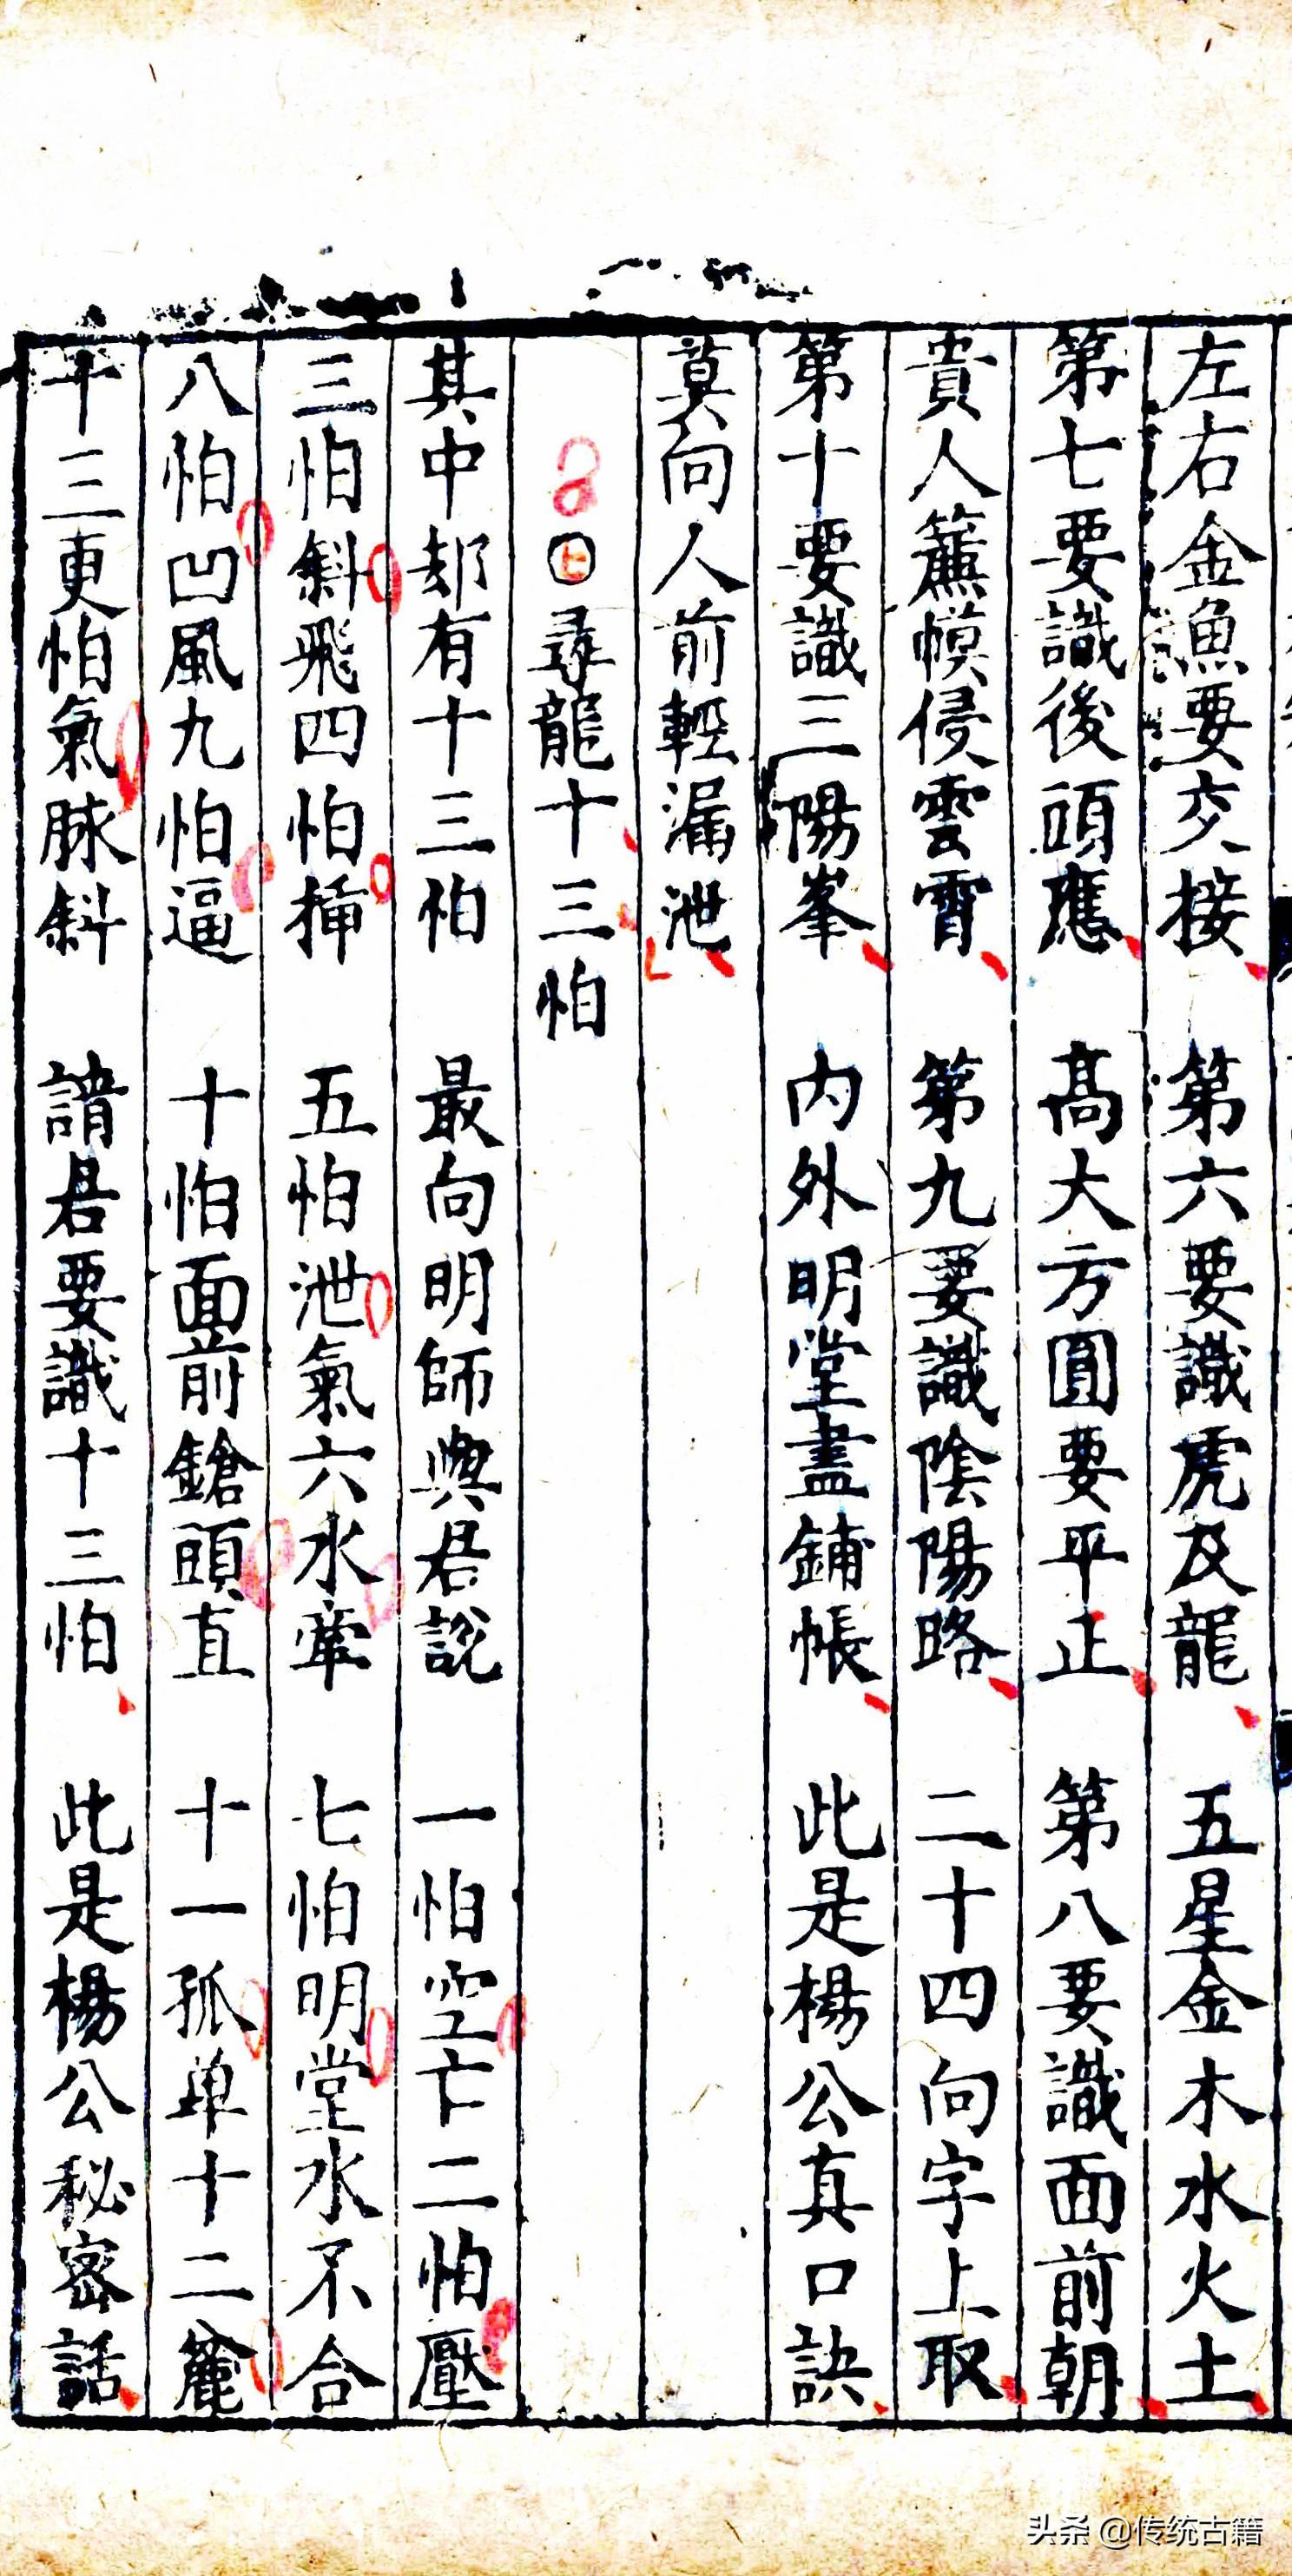 左右金魚要交接　第六要識虎及龍　五星金木水火土
第七要識後頭應　高大方圓要平正　第八要識面前朝
貴人簾幙侵雲霄　第九要識陰陽略　二十四向字上取
第十要識三陽峯　內外明堂盡鋪帳　此是楊公真口訣
莫向人前輕漏泄
尋龍十三怕
其中却有十三怕　最向明師與君說　一怕空亡二怕壓
三怕斜飛四怕揷　五怕泄氣六水牽　七怕明堂水不合
八怕凹風九怕逼　十怕面前鎗頭直　十一孤单十二麄
十三更怕氣脉斜　請君要識十三怕　此是楊公秘密話
头条 @传统古籍